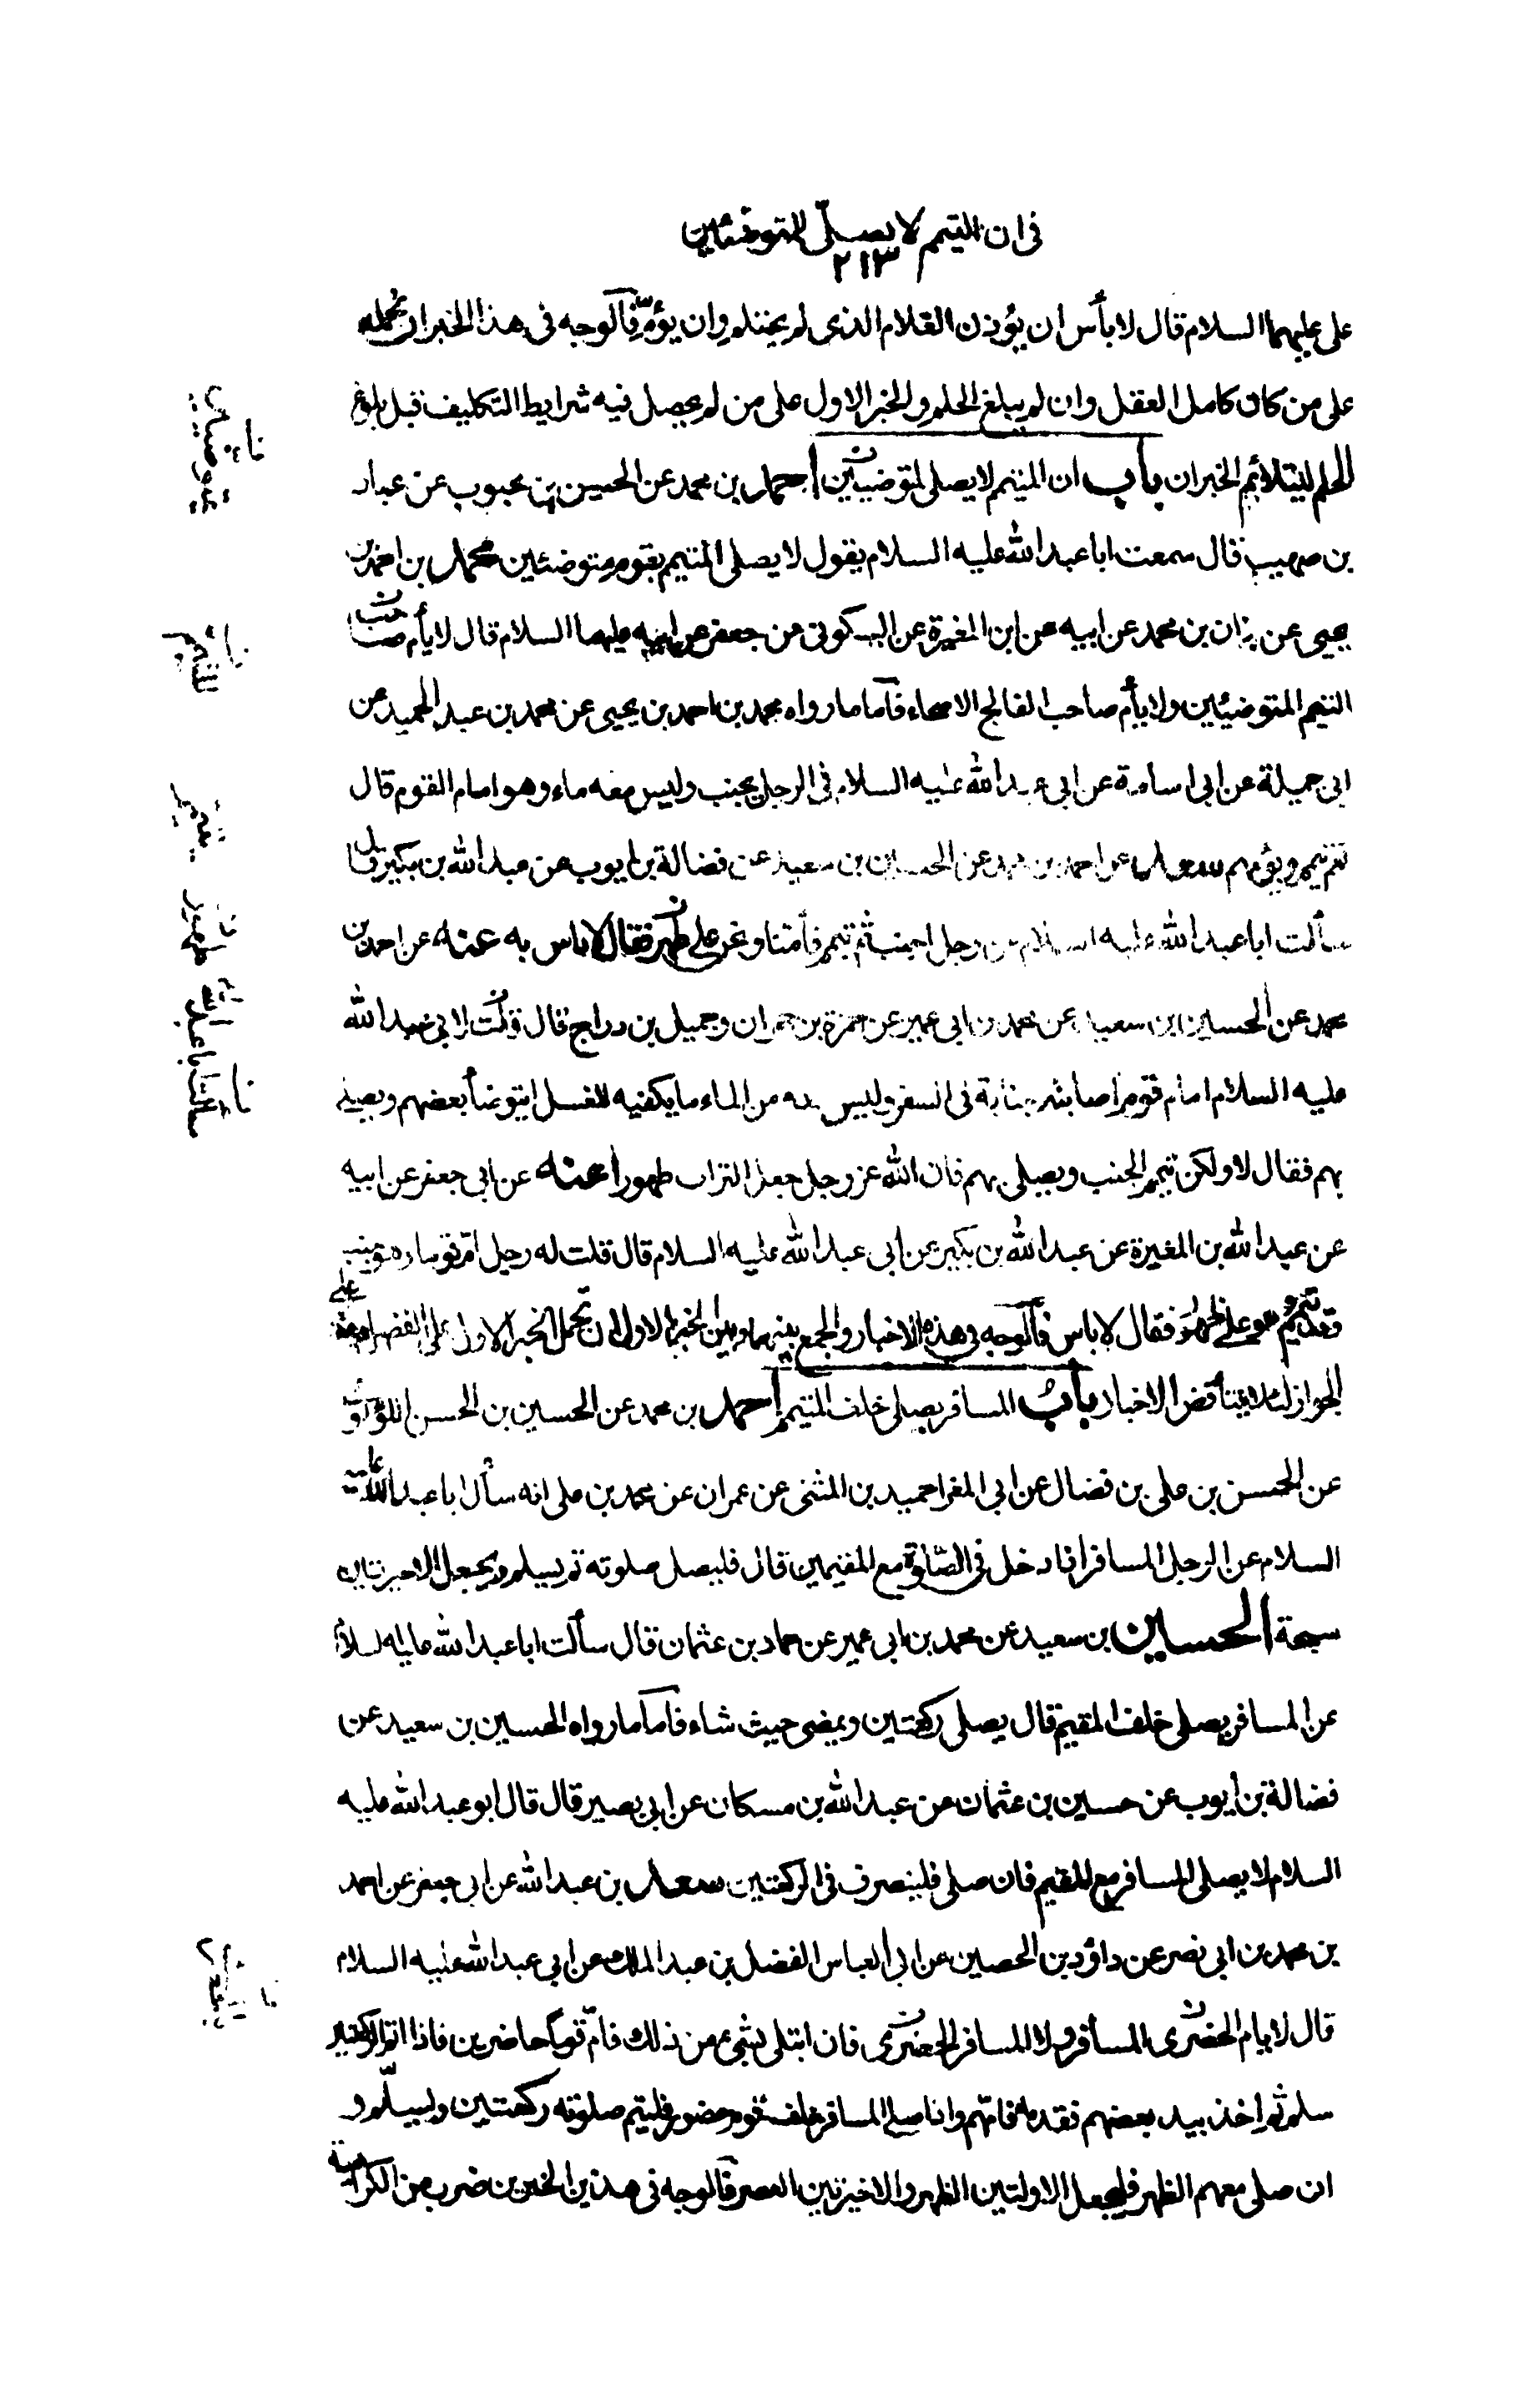 فى ان المتيمم لا يصلّى المتوضئين
٢١٣
على عليهما السلام قال لا بأس ان يؤذن الغلام الذى لم يحتلم وان يؤمّ فآلوجه فى هذا الخبر ان نحمله
على من كان كامل العقل وان لم يبلغ الحلم والخبر الاول على من لم يحصل فيه شرايط التكليف قبل بلوغ
الحلم ليتلائم الخبران باب ان المتيمم لا يصلى لمتوضيئين احمد بن محمد عن الحسين بن محبوب عن عباد
بن صهيب قال سمعت ابا عبد الله عليه السلام يقول لا يصلى المتيمم بقوم متوضئين محمد بن احمد بن
يحيى عن بنان بن محمد عن ابيه عن ابن المغيرة عن السكونى عن جعفر عن ابيه عليهما السلام قال لا يأم صاحب
التيمم المتوضيئين ولا يأم صاحب الفالج الاصحاء فآما ما رواه محمد بن احمد بن يحيى عن محمد بن عبد الحميد عن
ابى جميلة عن ابى اسامة عن ابى عبد الله عليه السلام فى الرجل يجنب وليس معه ماء وهو امام القوم قال
نعم يتيمم ويؤمهم سعد عن احمد بن محمد عن الحسين بن سعيد عن فضالة بن ايوب عن عبد الله بن بكير قال
سألت ابا عبد الله عليه السلام عن رجل اجنب ثم تيمم فأمنا ونحن على طهر فقال لا باس به عنه عن احمد بن
محمد عن الحسين بن سعيد عن محمد بن ابى عمير عن حمزة بن حمران وجميل بن دراج قال قلت لابى عبد الله
عليه السلام امام قوم اصابته جنابة فى السفر وليس معه من الماء ما يكفيه للغسل ايتوضأ بعضهم ويصلى
بهم فقال لا ولكن تيمم الجنب ويصلى بهم فان الله عز وجل جعل التراب طهورا عنه عن ابى جعفر عن ابيه
عن عبد الله بن المغيرة عن عبد الله بن بكير عن ابى عبد الله عليه السلام قال قلت له رجل امّ قوما وهو جنب
وقد تيمم وهم على طهور فقال لا باس فآلوجه فى هذه الاخبار والجمع بينهما وبين الخبر الاول ان نحمل الخبر الاول على الفضل وهذه على
الجواز لئلا يتناقض الاخبار باب المسافر يصلى خلف المقيم احمد بن محمد عن الحسين بن الحسن اللؤلؤى
عن الحسن بن على بن فضال عن ابى المغرا حميد بن المثنى عن عمران عن محمد بن على انه سأل ابا عبد الله عليه
السلام عن الرجل المسافر اذا دخل فى الصّلوة مع المقيمين قال فليصل صلوته ثم يسلم ويجعل الاخيرتين
سبحة الحسين بن سعيد عن محمد بن ابى عمير عن حماد بن عثمان قال سألت ابا عبد الله عليه السلام
عن المسافر يصلى خلف المقيم قال يصلى ركعتين ويمضى حيث شاء فآما ما رواه الحسين بن سعيد عن
فضالة بن ايوب عن حسين بن عثمان عن عبد الله بن مسكان عن ابى بصير قال قال ابو عبد الله عليه
السلام لا يصلى المسافر مع المقيم فان صلى فلينصرف فى الركعتين سعد بن عبد الله عن ابى جعفر عن احمد
بن محمد بن ابى نصر عن داؤد بن الحصين عن ابى العباس الفضل بن عبد الملك عن ابى عبد الله عليه السلام
قال لا يام الحضرى المسافر ولا المسافر الحضرى فان ابتلى بشىء من ذلك فامّ قوما حاضرين فاذا اتم الركعتين
سلم ثم اخذ بيد بعضهم فقدمه فامّهم واذا صلى المسافر خلف قوم حضور فليتم صلوته ركعتين ويسلّم و
ان صلى معهم الظهر فليجعل الاولتين الظهر والاخيرتين العصر فآلوجه فى هذين الخبرين ضرب من الكراهية
متوضيين
المتيمم
يتيمم
طهور
سألت ابا عبد الله